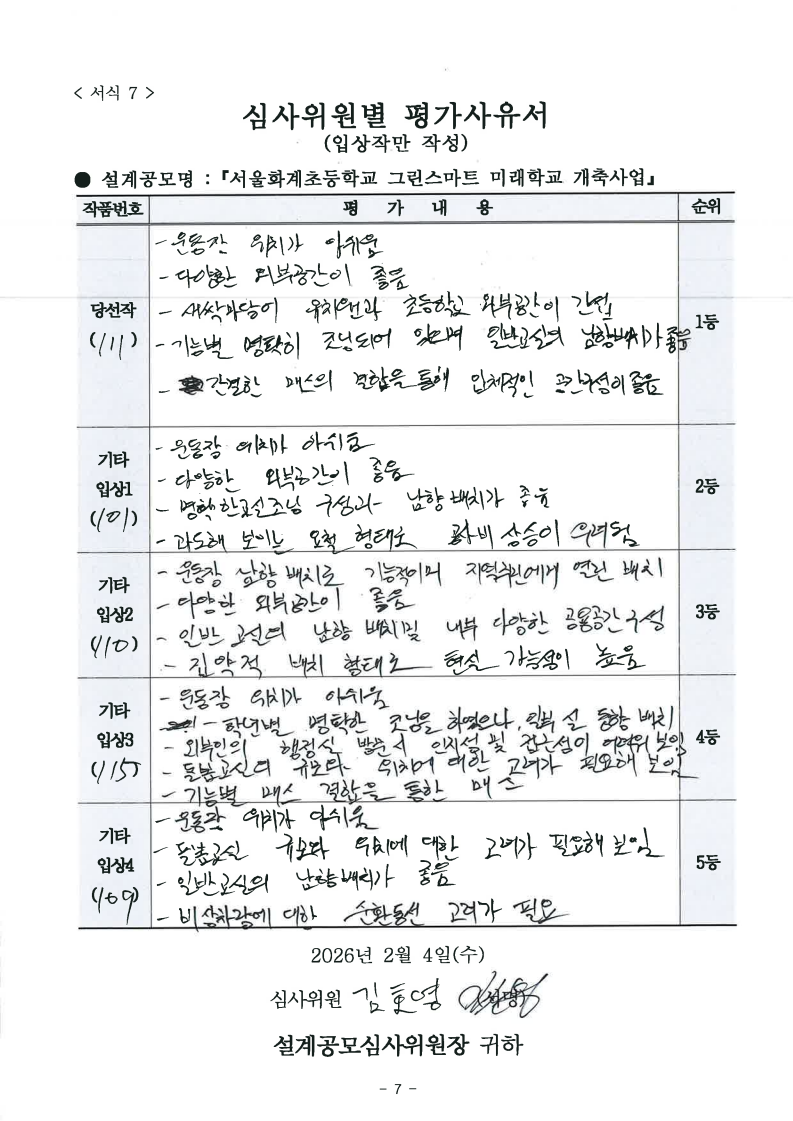 < 서식 7 >
심사위원별 평가사유서
(입상작만 작성)
● 설계공모명 : 『서울화계초등학교 그린스마트 미래학교 개축사업』
작품번호 평 가 내 용 순위
당선작
(111)
- 운동장 위치가 아쉬움
- 다양한 외부공간이 좋음
- 새싹마당이 유치원과 초등학교 외부공간이 간섭
- 기능별 명확히 조닝되어 있으며 일반교실의 남향배치가 좋음
- 간결한 매스의 결합을 통해 입체적인 공간구성이 좋음
1등
기타
입상1
(101)
- 운동장 위치가 아쉬움
- 다양한 외부공간이 좋음
- 명확한 교실조닝 구성과 남향 배치가 좋음
- 과도해 보이는 요철 형태로 공사비 상승이 우려됨
2등
기타
입상2
(110)
- 운동장 남향 배치로 기능적이며 지역주민에게 열린 배치
- 다양한 외부공간이 좋음
- 일반 교실의 남향 배치 및 내부 다양한 공용공간 구성
- 집약적 배치 형태로 현실 가능성이 높음
3등
기타
입상3
(115)
- 운동장 위치가 아쉬움
- 학년별 명확한 조닝을 하였으나, 일부 실 동향 배치
- 외부인의 행정실 방문시 인지성 및 접근성이 어려워 보임
- 돌봄교실의 규모와 위치에 대한 고려가 필요해 보임
- 기능별 매스 결합을 통한 매스
4등
기타
입상4
(109)
- 운동장 위치가 아쉬움
- 돌봄교실 규모와 위치에 대한 고려가 필요해 보임
- 일반교실의 남향배치가 좋음
- 비상차량에 대한 순환동선 고려가 필요
5등
2026년 2월 4일(수)
심사위원 김호영
설계공모심사위원장 귀하
- 7 -